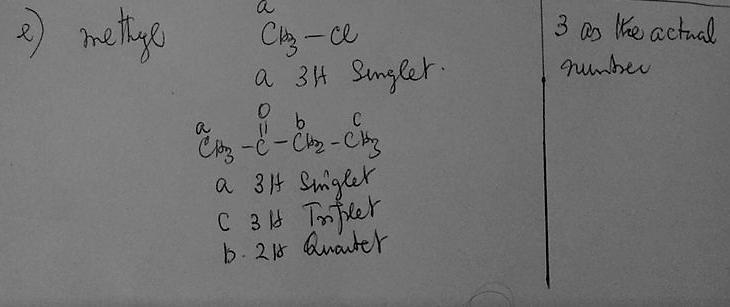 a
e) methyl CH3 – Cl
a 3H Singlet.
O
a b c
CH3 – C – CH2 – CH3
a 3H Singlet
c 3H Triplet
b. 2H Quartet
3 as the actual
number